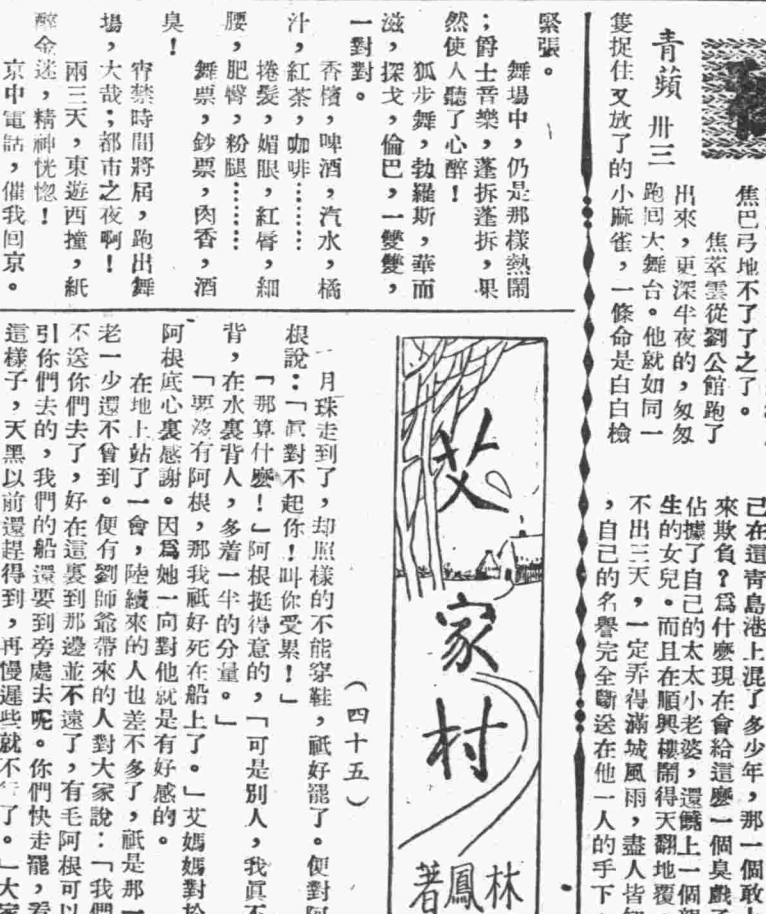 焦巴弓地不了了之了。
焦萃雲從劉公館跑了
出來,更深半夜的,匆匆
跑回大舞台。他就如同一
隻捉住又放了的小麻雀,一條命是白白檢
青蘋
卅三
己在這青島港上混了多少年,那一個敢
來欺負?爲什麽現在會給這麽一個臭戲子
佔據了自己的太太小老婆,還饒上一個親
生的女兒。而且在順興樓鬧得天翻地覆,
不出三天,一定弄得滿城風雨,盡人皆
,自己的名譽完全斷送在他一人的手下
緊張。
舞場中,仍是那樣熱鬧
;爵士音樂,蓬拆蓬拆,果
然使人聽了心醉!
狐步舞,勃羅斯,華而
滋,探戈,倫巴,一雙雙,
一對對。
香檳,啤酒,汽水,橘
汁,紅茶,咖啡………
捲髮,媚眼,紅唇,細
腰,肥臀,粉腿………
舞票,鈔票,肉香,酒
臭!
宵禁時間將屆,跑出舞
場,大哉;都市之夜啊!
兩三天,東遊西撞,紙
醉金迷,精神恍惚!
京中電話,催我回京。
艾家村
林鳳著
(四十五)
月珠走到了,却照樣的不能穿鞋,祇好罷了。便對阿
根說:「眞對不起你!叫你受累!」
「那算什麽!」阿根挺得意的,「可是別人,我眞不
背,在水裏背人,多着一半的分量。」
「要沒有阿根,那我祇好死在船上了。」艾媽媽對於
阿根底心裏感謝。因爲她一向對他就是有好感的。
在地上站了一會,陸續來的人也差不多了,祇是那一
老一少還不曾到。便有劉師爺帶來的人對大家說:「我們
不送你們去了,好在這裏到那邊並不遠了,有毛阿根可以
引你們去的,我們的船還要到旁處去呢。你們快走罷,看
這樣子,天黑以前還趕得到,再慢遲些就不 了。」大家